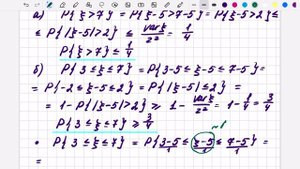 а) P{ξ>7} = P{ξ-5>7-5} = P{ξ-5>2} ≤
≤ P{|ξ-5|>2} ≤ varξ/2² = 1/4
P{ξ>7} ≤ 1/4
б) P{3≤ξ≤7} = P{3-5≤ξ-5≤7-5} =
= P{-2≤ξ-5≤2} = P{|ξ-5|≤2} =
= 1-P{|ξ-5|>2} ≥ 1-varξ/2² = 1-1/4 = 3/4
P{3≤ξ≤7} ≥ 3/4
• P{3≤ξ≤7} = P{(3-5)/1 ≤ (ξ-5)/1 ≤ (7-5)/1} =
=